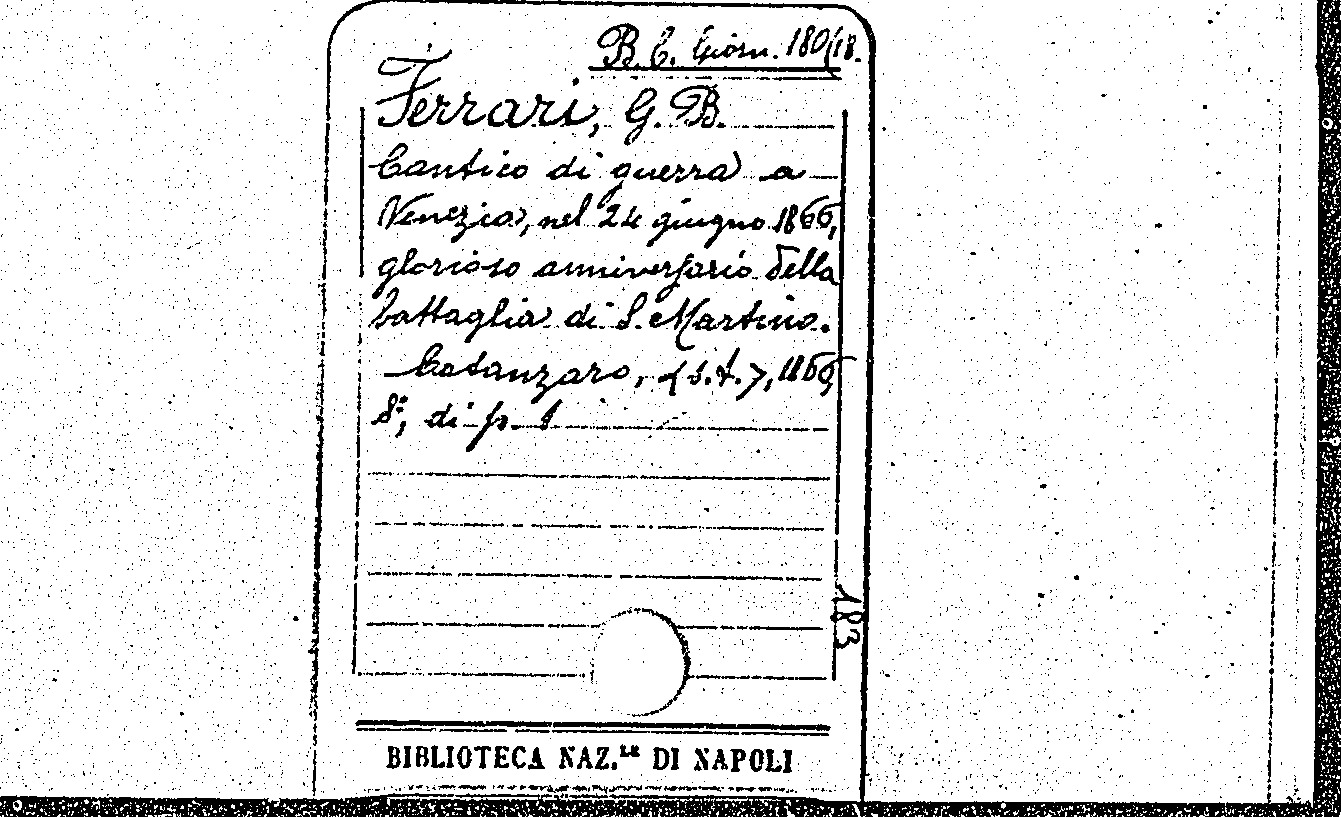 B. C. Giorn. 180/18.
Ferrari, G. B.
Cantico di guerra a
Venezia, nel 24 giugno 1866,
glorioso anniversario della
battaglia di S. Martino.
Catanzaro, <s. t.>, 1866,
8°, di p. 1
183
BIBLIOTECA NAZ.LE DI NAPOLI